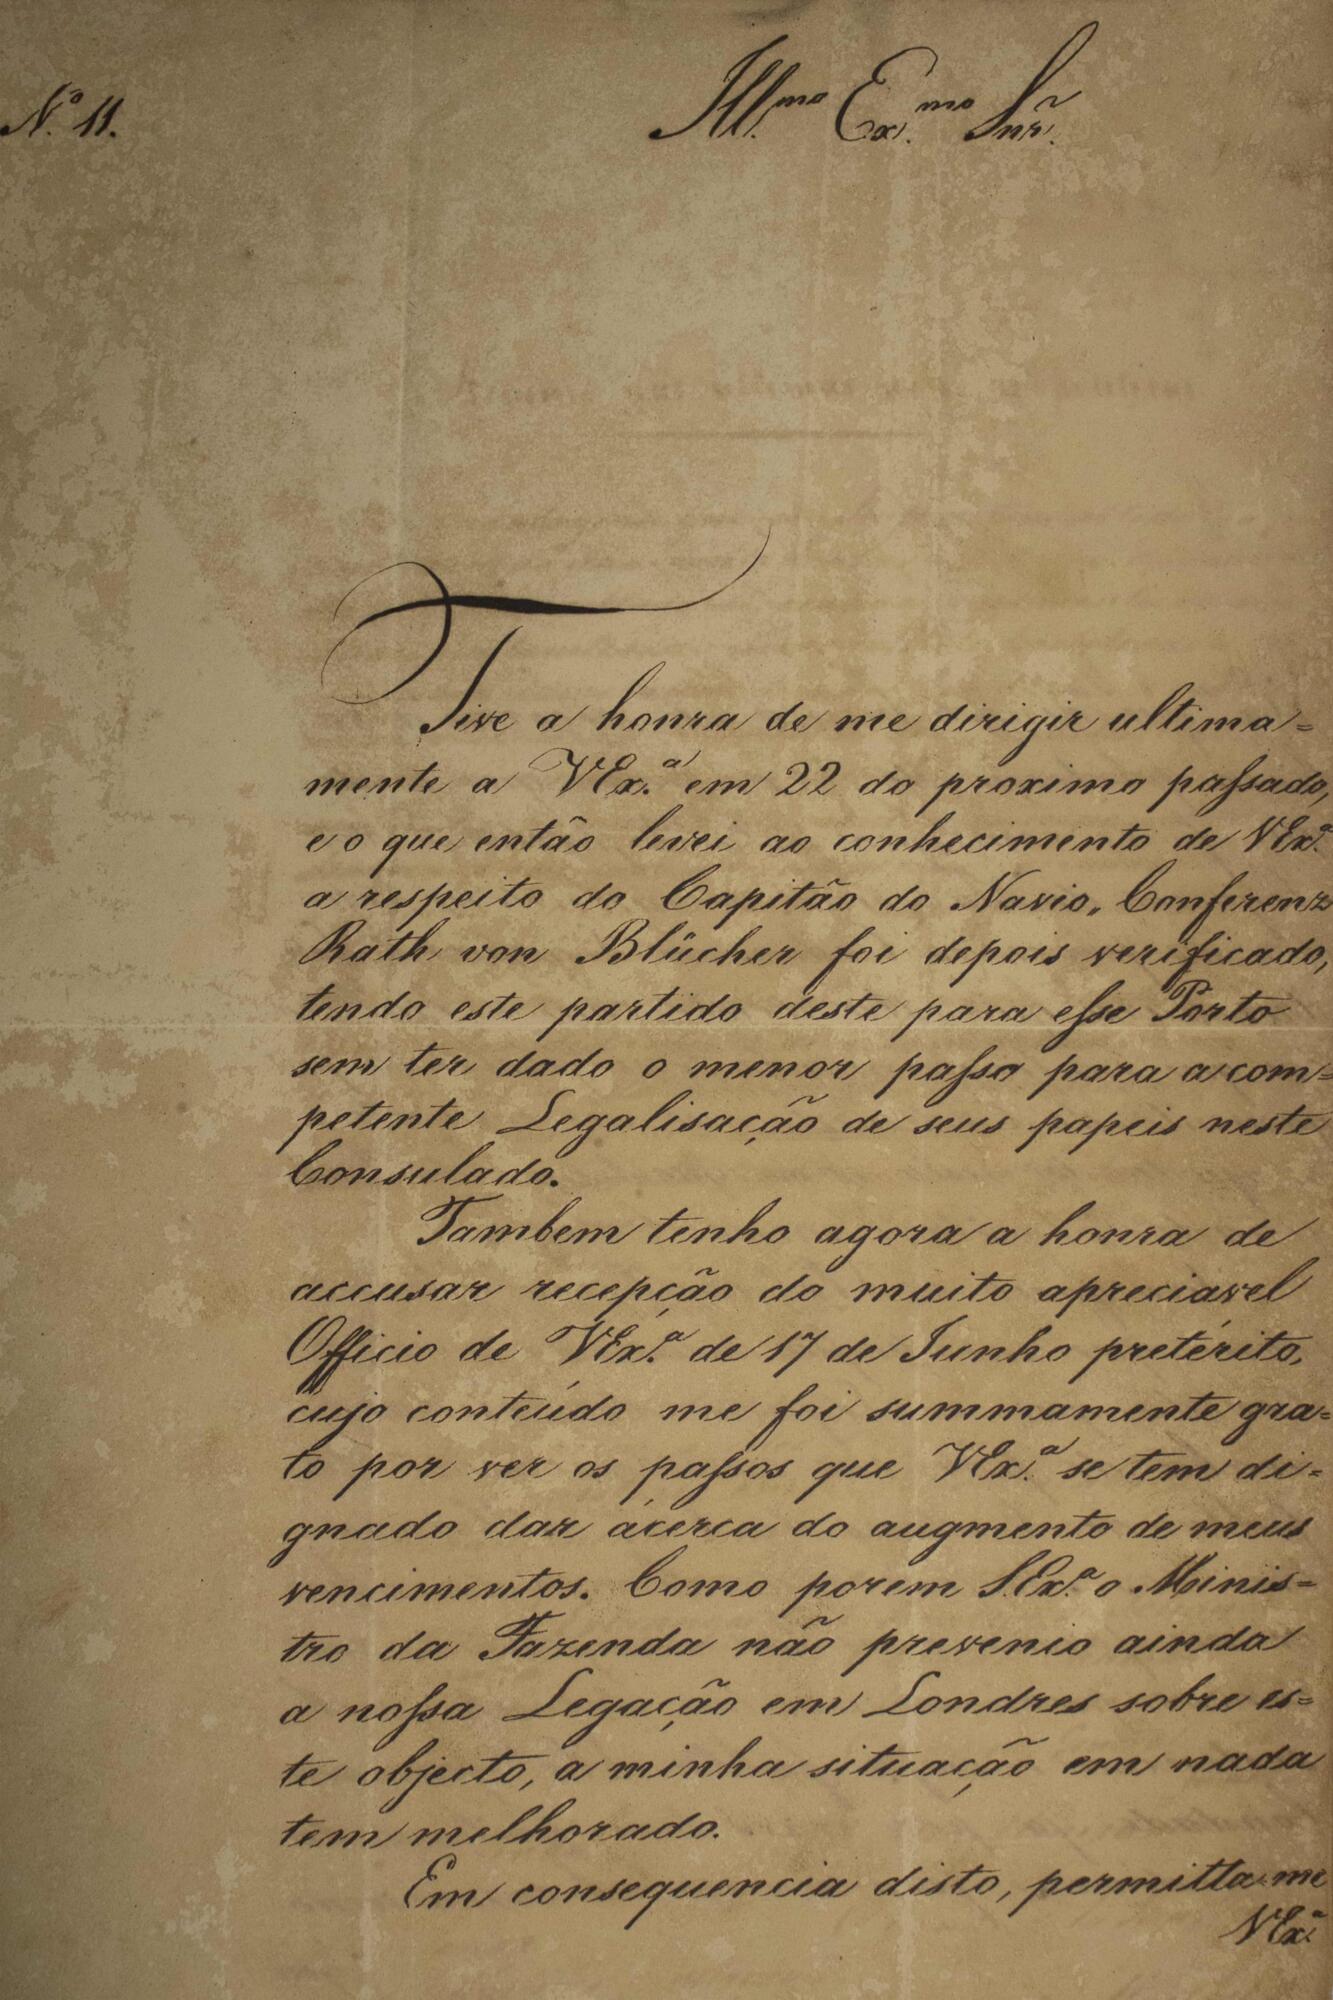 N.º 11.
Ill.mo Ex.mo Snr.
Tive a honra de me dirigir ultima=
mente a VEx.ª em 22 do proximo passado,
e o que então levei ao conhecimento de VEx.ª
a respeito do Capitão do Navio „ Conferenz
Rath von Blücher foi depois verificado,
tendo este partido deste para esse Porto
sem ter dado o menor passo para a com=
petente Legalisação de seus papeis neste
Consulado.
Tambem tenho agora a honra de
accusar recepção do muito apreciavel
Officio de VEx.ª de 17 de Junho pretérito,
cujo conteúdo me foi summamente gra=
to por ver os passos que VEx.ª se tem di=
gnado dar ácerca do augmento de meus
vencimentos. Como porem S.Ex.ª o Minis=
tro da Fazenda não prevenio ainda
a nossa Legação em Londres sobre es=
te objecto, a minha situação em nada
tem melhorado.
Em consequencia disto, permitta-me
VEx.ª